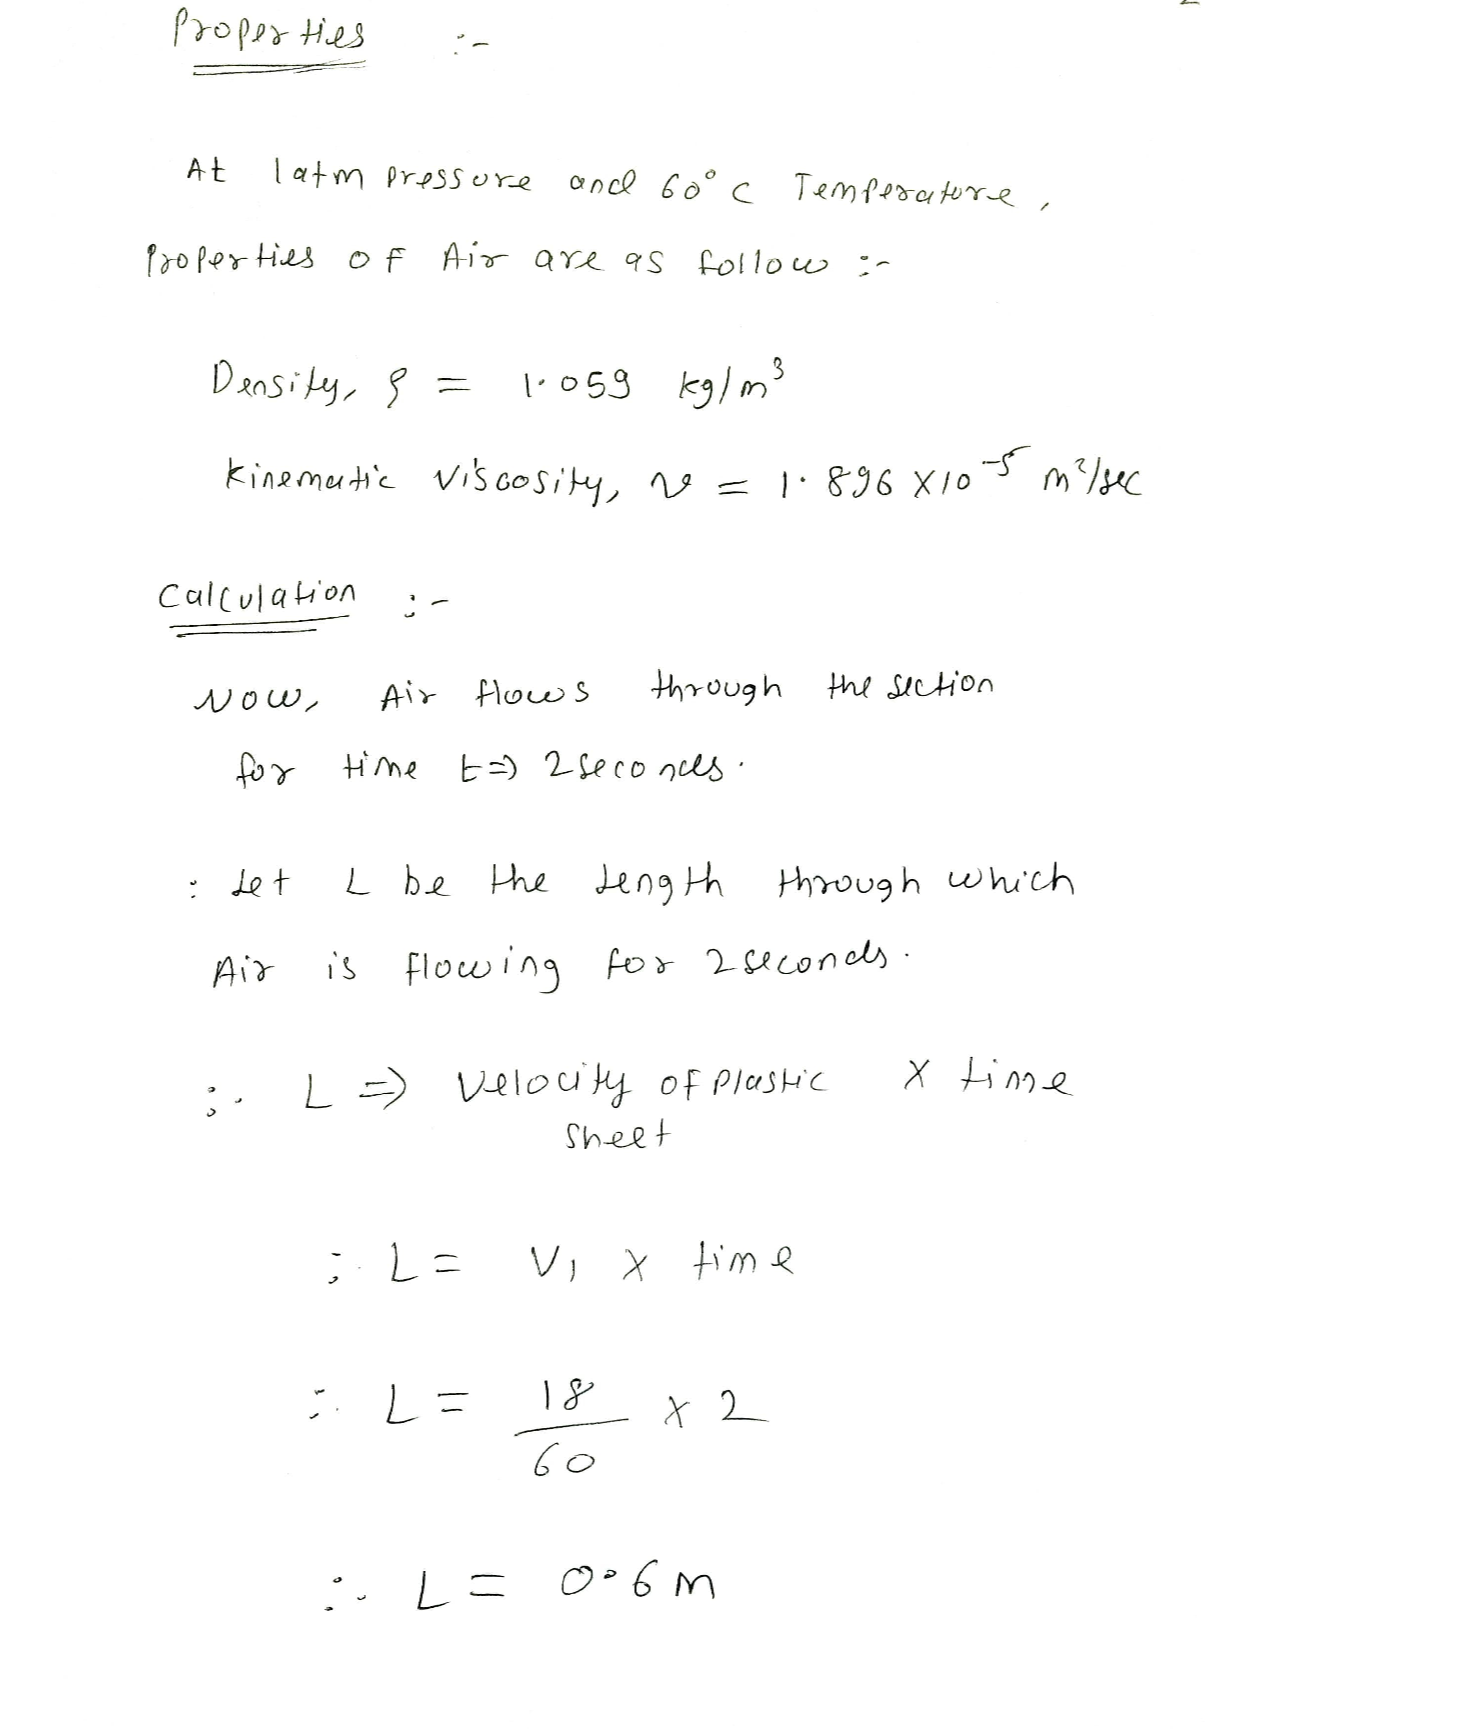 Properties :-
At 1atm pressure and 60° C Temperature,
Properties OF Air are as follow :-
Density, ρ = 1.059 kg/m³
Kinematic viscosity, ν = 1.896 X10⁻⁵ m²/sec
Calculation :-
NOW, Air flows through the section
for time t⇒ 2 seconds.
: Let L be the Length through which
Air is flowing for 2 seconds.
∴ L ⇒ Velocity of Plastic X time
Sheet
∴ L = V₁ X time
∴ L = 18/60 X 2
∴ L = 0.6 m